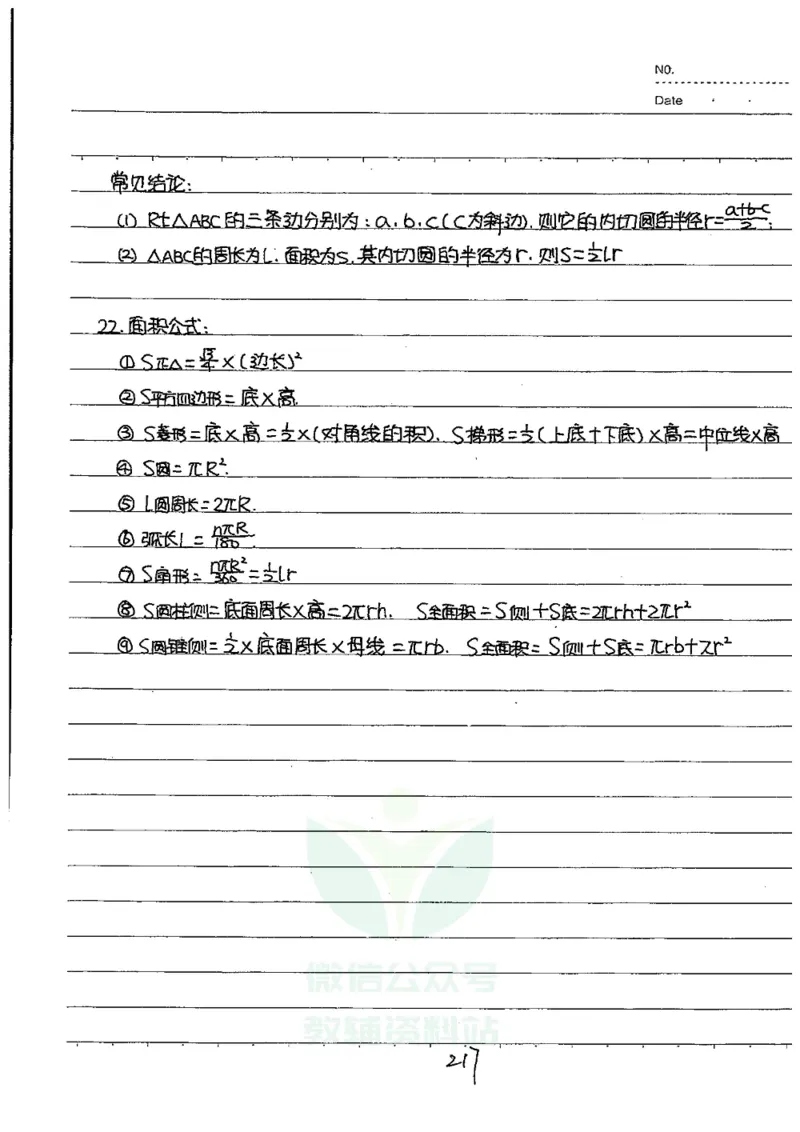 NO.
Date
常见结论:
(1) Rt△ABC的三条边分别为:a.b.c(C为斜边).则它的内切圆的半径r=\frac{a+b-c}{2};
(2) △ABC的周长为l.面积为S.其内切圆的半径为r.则S=\frac{1}{2}lr
22.面积公式:
① S正△=\frac{\sqrt{3}}{4}×(边长)²
② S平行四边形=底×高.
③ S菱形=底×高=\frac{1}{2}×(对角线的积). S梯形=\frac{1}{2}(上底+下底)×高=中位线×高
④ S圆=πR².
⑤ L圆周长=2πR.
⑥ 弧长l=\frac{nπR}{180}.
⑦ S扇形=\frac{nπR²}{360}=\frac{1}{2}lr
⑧ S圆柱侧=底面周长×高=2πrh. S全面积=S侧+S底=2πrh+2πr²
⑨ S圆锥侧=\frac{1}{2}×底面周长×母线=πrb. S全面积=S侧+S底=πrb+πr²
微信公众号
教辅资料站
217